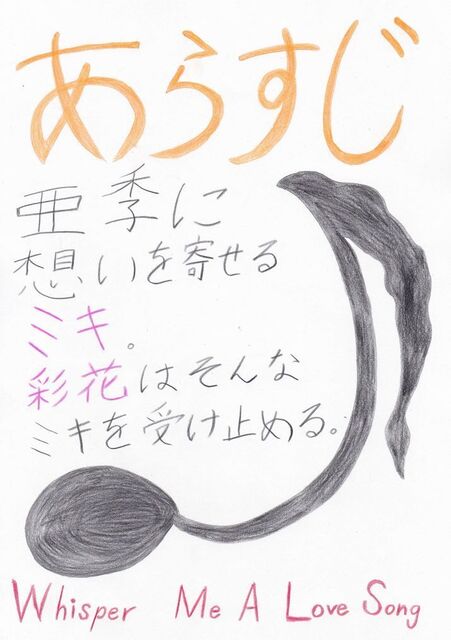 あらすじ
亜季に
想いを寄せる
ミキ。
彩花はそんな
ミキを受け止める。
Whisper Me A Love Song